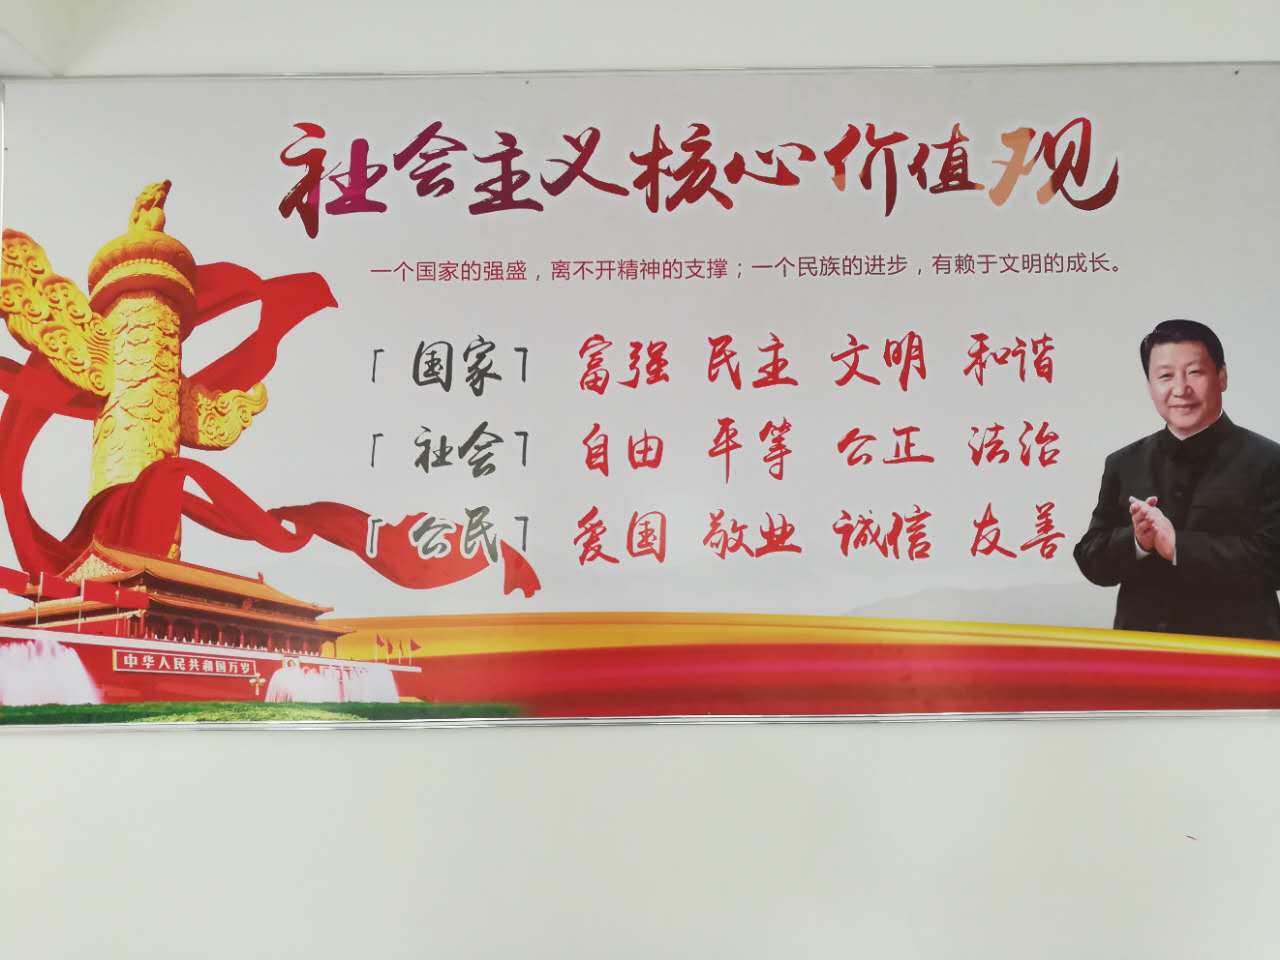 社会主义核心价值观
一个国家的强盛，离不开精神的支撑；一个民族的进步，有赖于文明的成长。
「国家」 富强 民主 文明 和谐
「社会」 自由 平等 公正 法治
「公民」 爱国 敬业 诚信 友善
中华人民共和国万岁